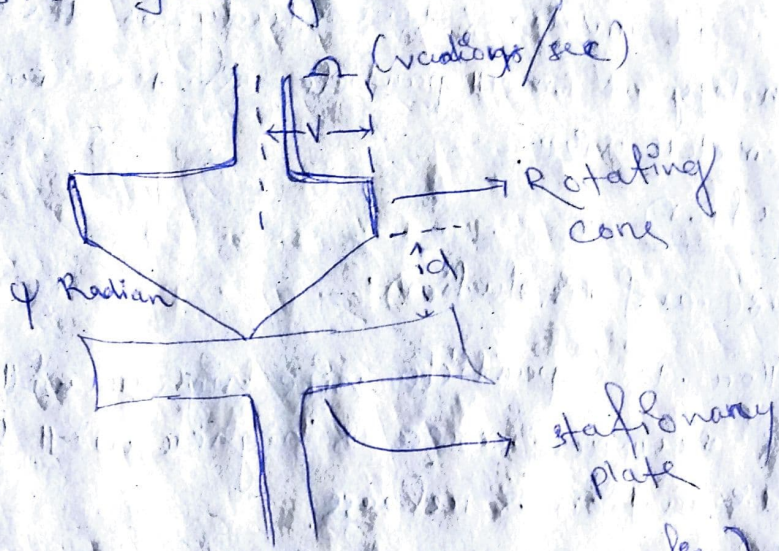 (radians/sec)
r
Rotating
cone
d
φ Radian
stationary
plate